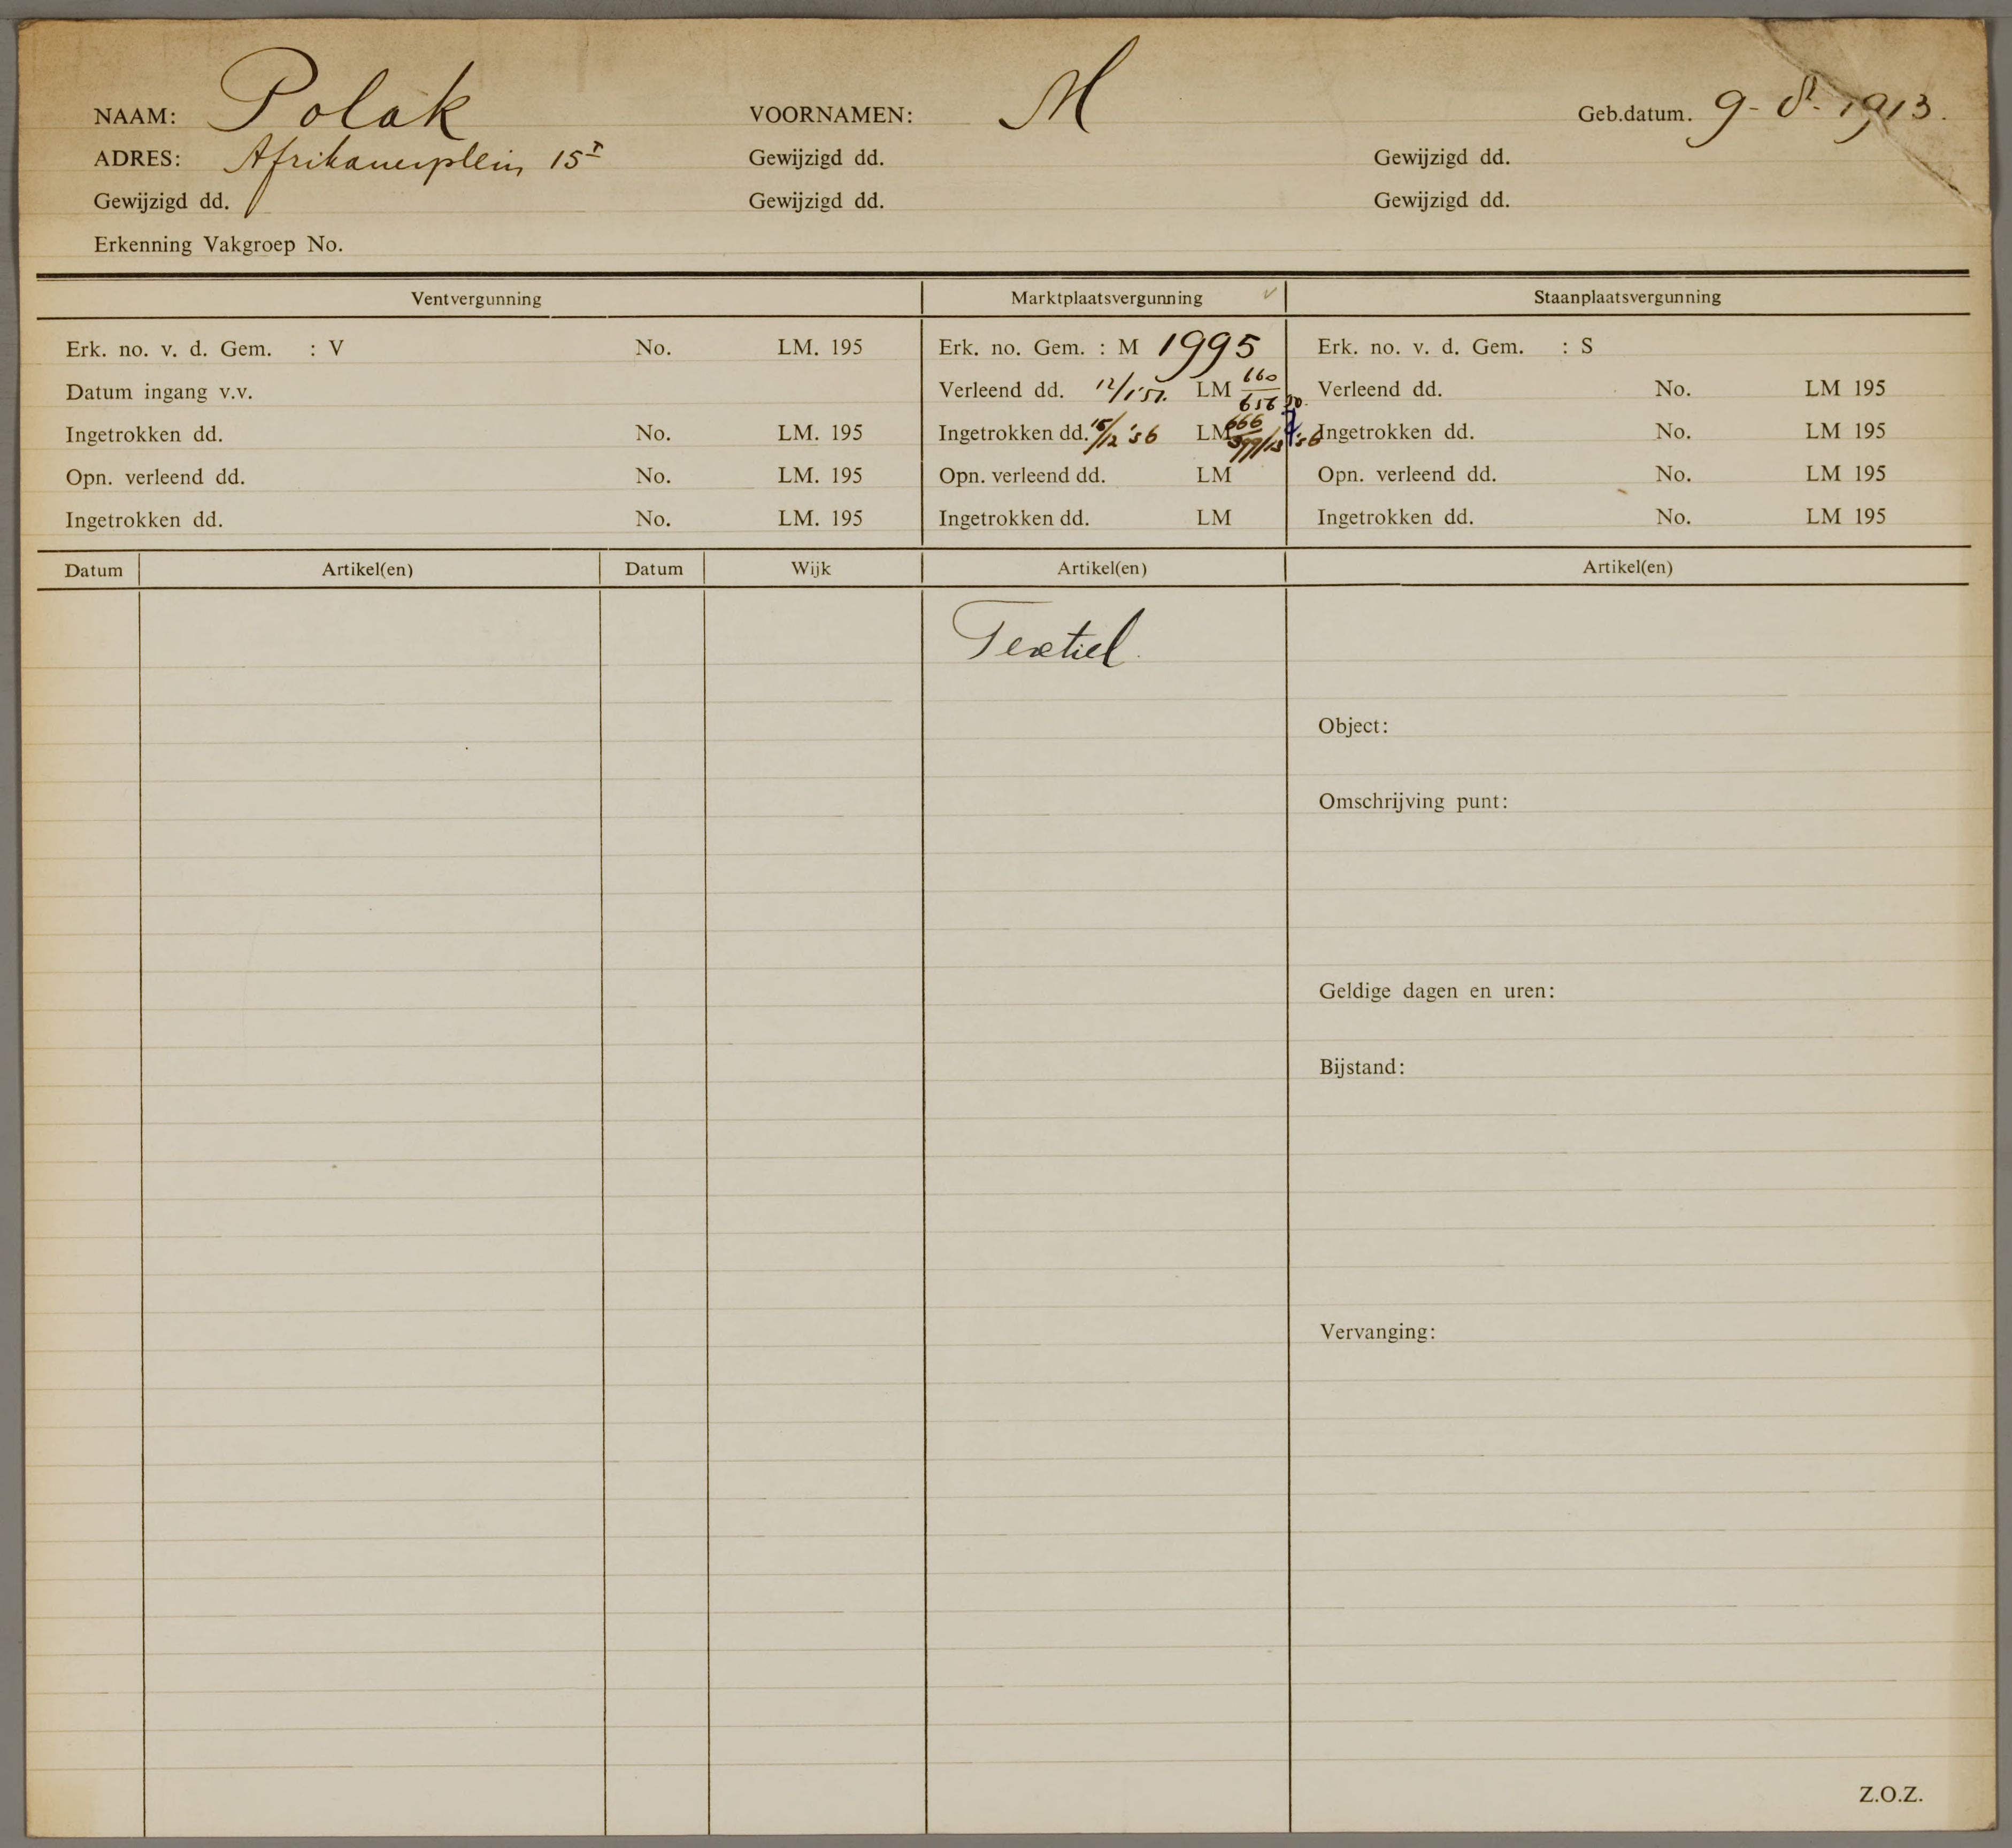 NAAM: Polak VOORNAMEN: M Geb.datum. 9-8-1913.
ADRES: Afrikanerplein 15 I Gewijzigd dd. Gewijzigd dd.
Gewijzigd dd. Gewijzigd dd. Gewijzigd dd.
Erkenning Vakgroep No.
Ventvergunning Marktplaatsvergunning Staanplaatsvergunning
Erk. no. v. d. Gem. : V No. LM. 195 Erk. no. Gem. : M 1995 Erk. no. v. d. Gem. : S
Datum ingang v.v. Verleend dd. 12/1'51. LM 660/656 50. Verleend dd. No. LM 195
Ingetrokken dd. No. LM. 195 Ingetrokken dd. 15/12 '56 LM 666 '56 Ingetrokken dd. No. LM 195
Opn. verleend dd. No. LM. 195 Opn. verleend dd. LM Opn. verleend dd. No. LM 195
Ingetrokken dd. No. LM. 195 Ingetrokken dd. LM Ingetrokken dd. No. LM 195
Datum Artikel(en) Datum Wijk Artikel(en) Artikel(en)
Textiel.
Object:
Omschrijving punt:
Geldige dagen en uren:
Bijstand:
Vervanging:
Z.O.Z.